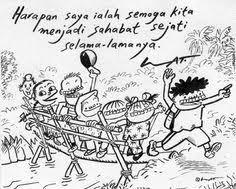 Harapan saya ialah semoga kita
menjadi sahabat sejati
selama-lamanya.